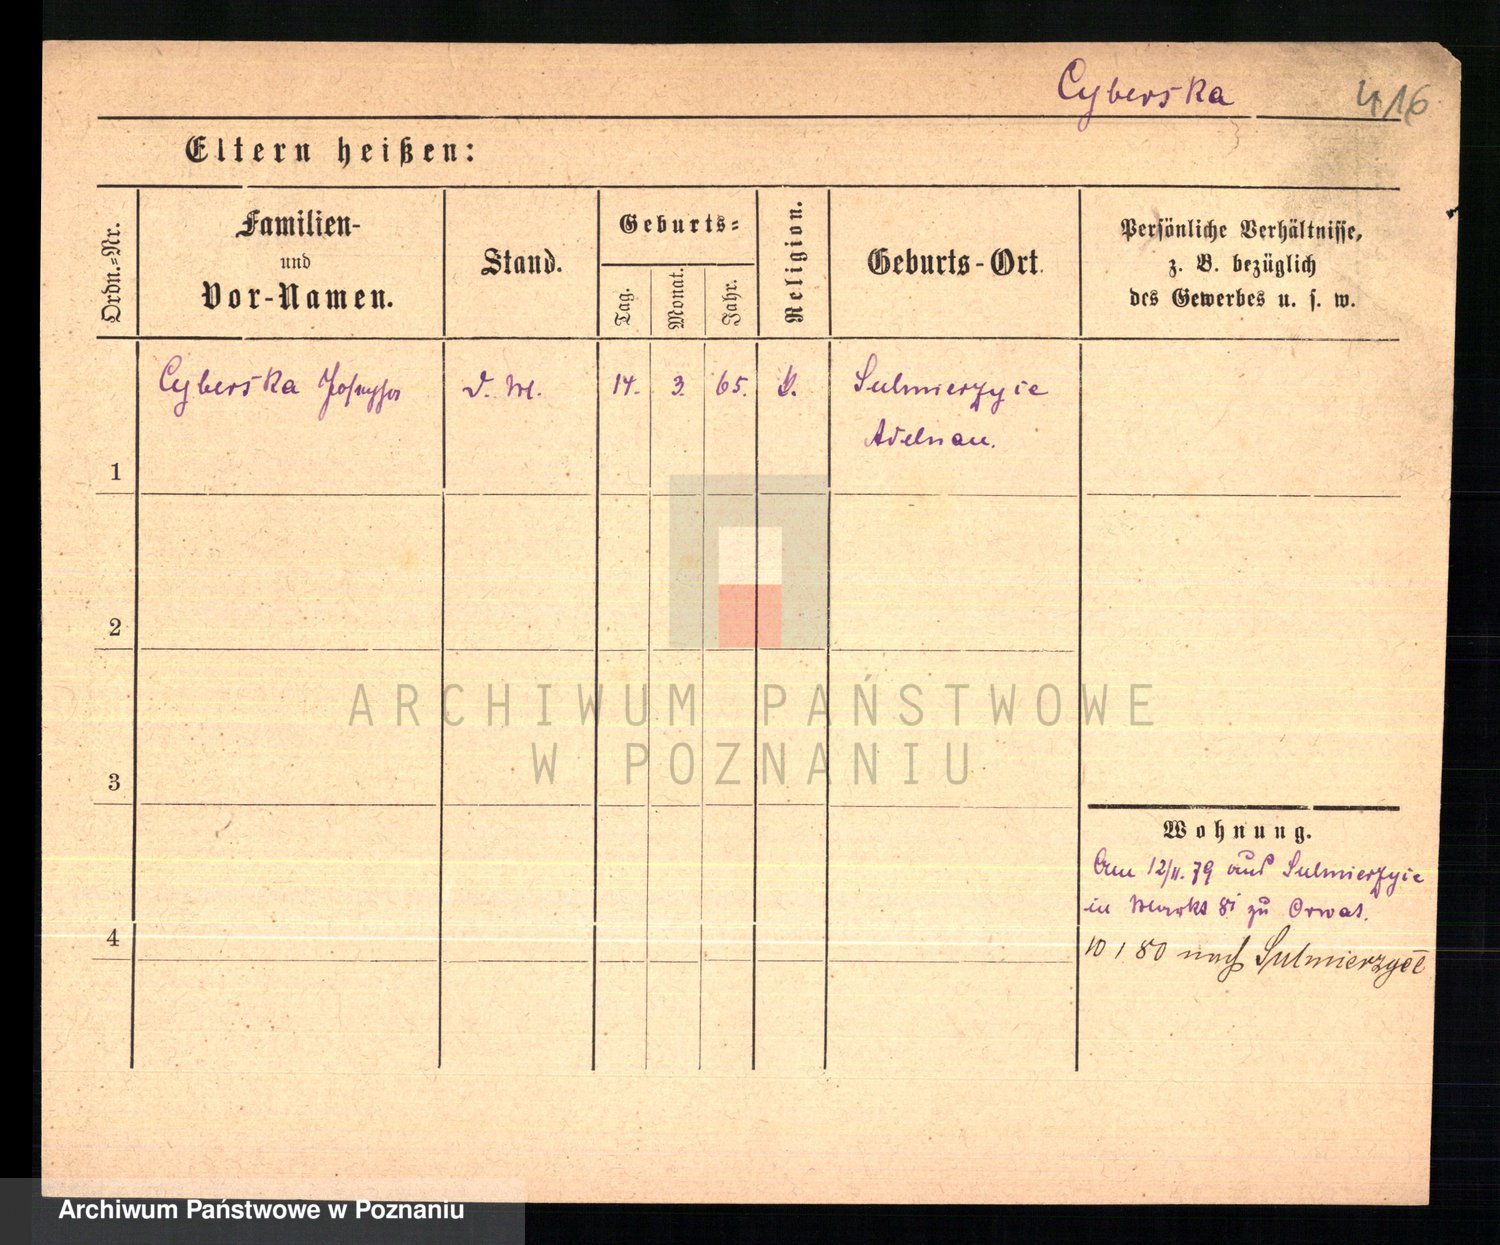 Cyberska 416
Eltern heißen:
Ordn.-Nr.
Familien-
und
Vor-Namen.
Stand.
Geburts-
Tag.
Monat.
Jahr.
Religion.
Geburts-Ort.
Persönliche Verhältnisse,
z. B. bezüglich
des Gewerbes u. s. w.
1 Cyberska Josepha D. M. 14. 3. 65. Sulmierzyce
Adelnau.
2
3
4
Wohnung.
Am 12/11. 79 aus Sulmierzyce
in Markt 81 zu Orwat.
10 1 80 nach Sulmierzyce
ARCHIWUM PAŃSTWOWE
W POZNANIU
Archiwum Państwowe w Poznaniu